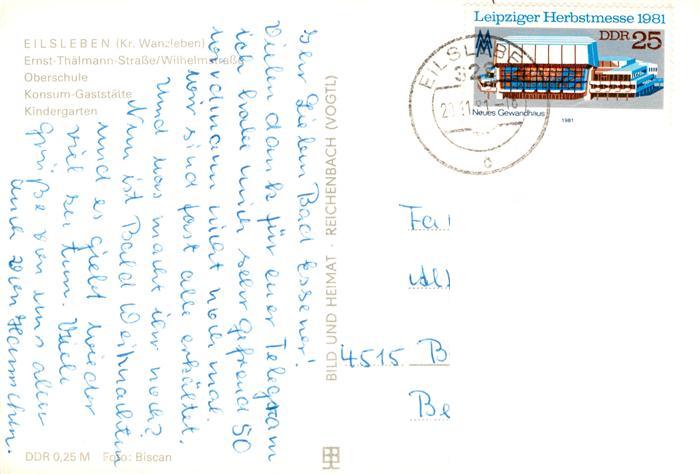 EILSLEBEN (Kr. Wanzleben)
Ernst-Thälmann-Straße/Wilhelmstraße
Oberschule
Konsum-Gaststätte
Kindergarten
Ihr Lieben Bad Essener!
Vielen dank für euer Telegram
ich habe mich sehr gefreud 50
wird man nicht noch mal
wir sind fast alle erkältet.
und was macht ihr noch?
Nun ist Bald Weihnachten
und es giebt wieder
viel zu tun. Viele
Grüße von uns allen
auch von Hannchen.
DDR 0,25 M Foto: Biscan
BILD UND HEIMAT · REICHENBACH (VOGTL)
Leipziger Herbstmesse 1981
DDR 25
Neues Gewandhaus
1981
EILSLEBEN
c
Fa
4515 B
Be